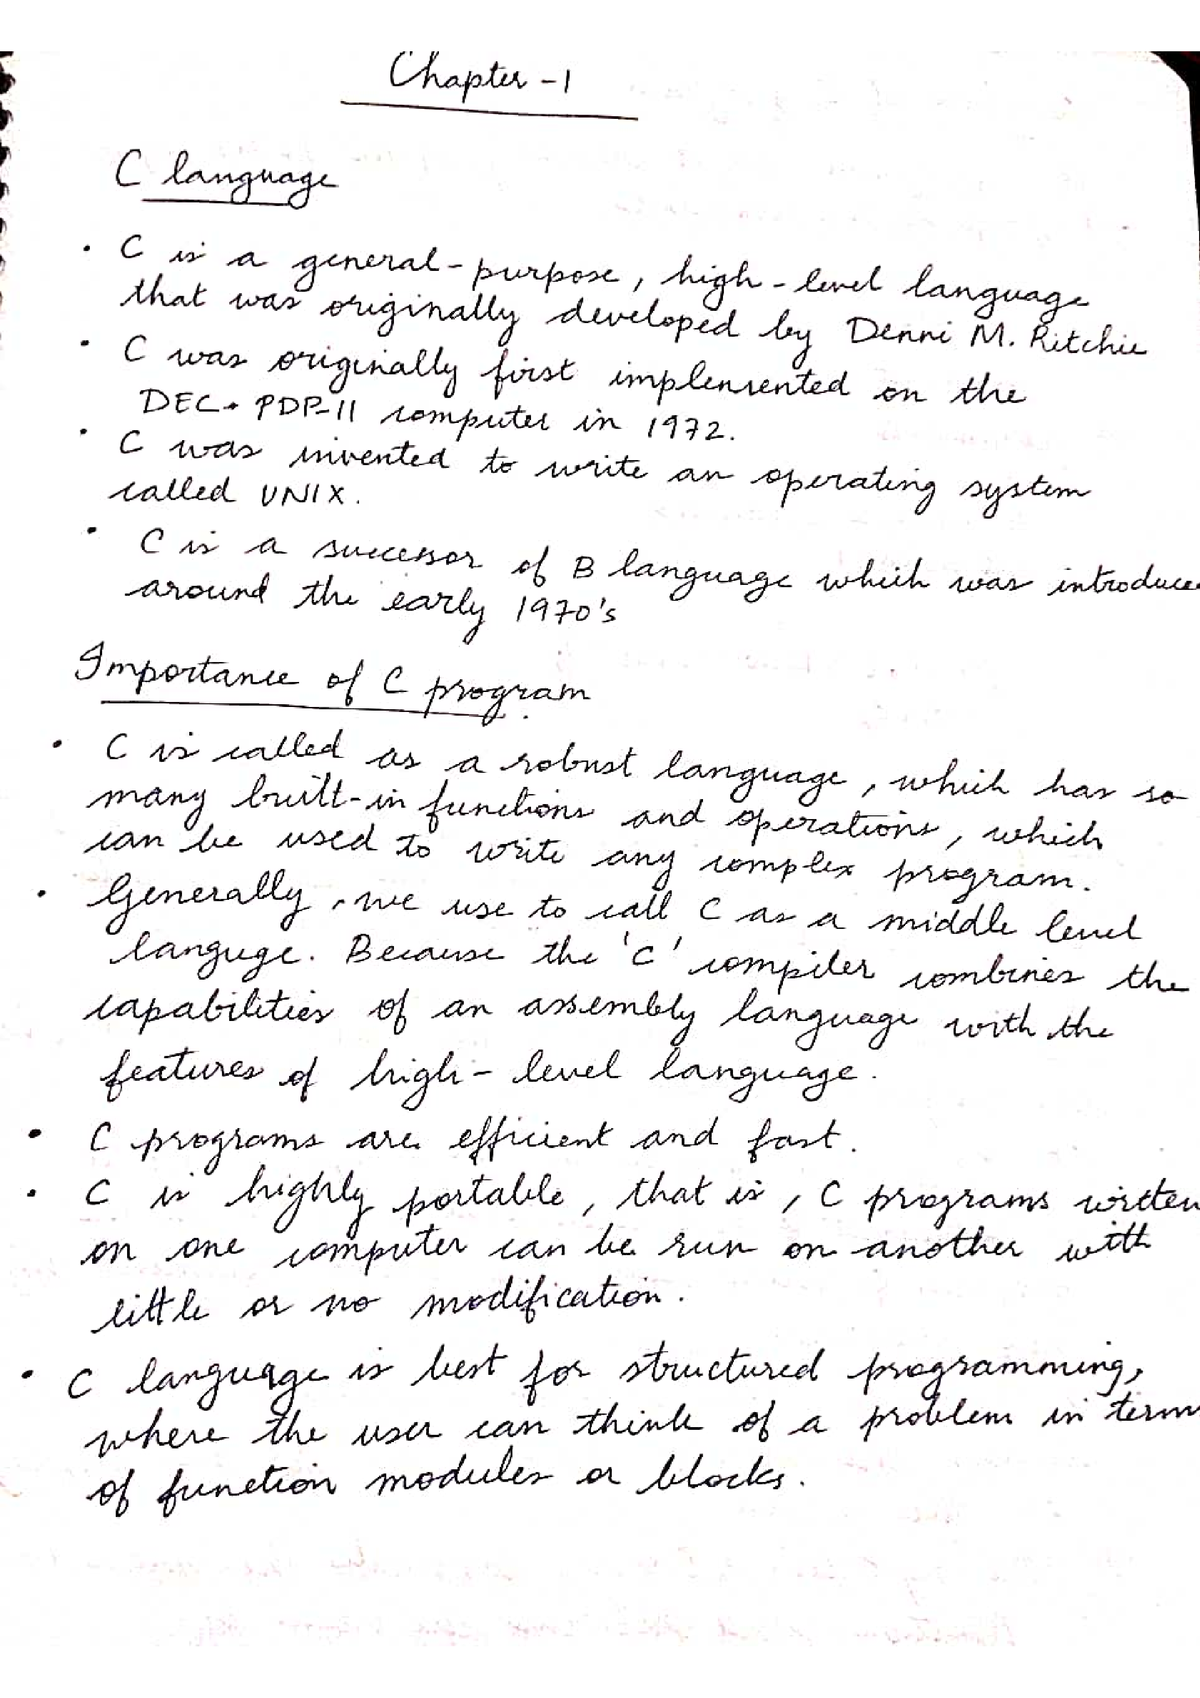 Chapter - 1
C language
• C is a general-purpose, high-level language
that was originally developed by Denni M. Ritchie
• C was originally first implemented on the
DEC. PDP-11 computer in 1972.
• C was invented to write an operating system
called UNIX.
• C is a successor of B language which was introduce
around the early 1970's
Importance of C program
• C is called as a robust language, which has so
many built-in functions and operations, which
can be used to write any complex program.
• Generally, we use to call C as a middle level
languge. Because the 'C' compiler combines the
capabilities of an assembly language with the
features of high-level language.
• C programs are efficient and fast.
• C is highly portable, that is, C programs written
on one computer can be run on another with
little or no modification.
• C language is best for structured programming,
where the user can think of a problem in term
of function modules or blocks.